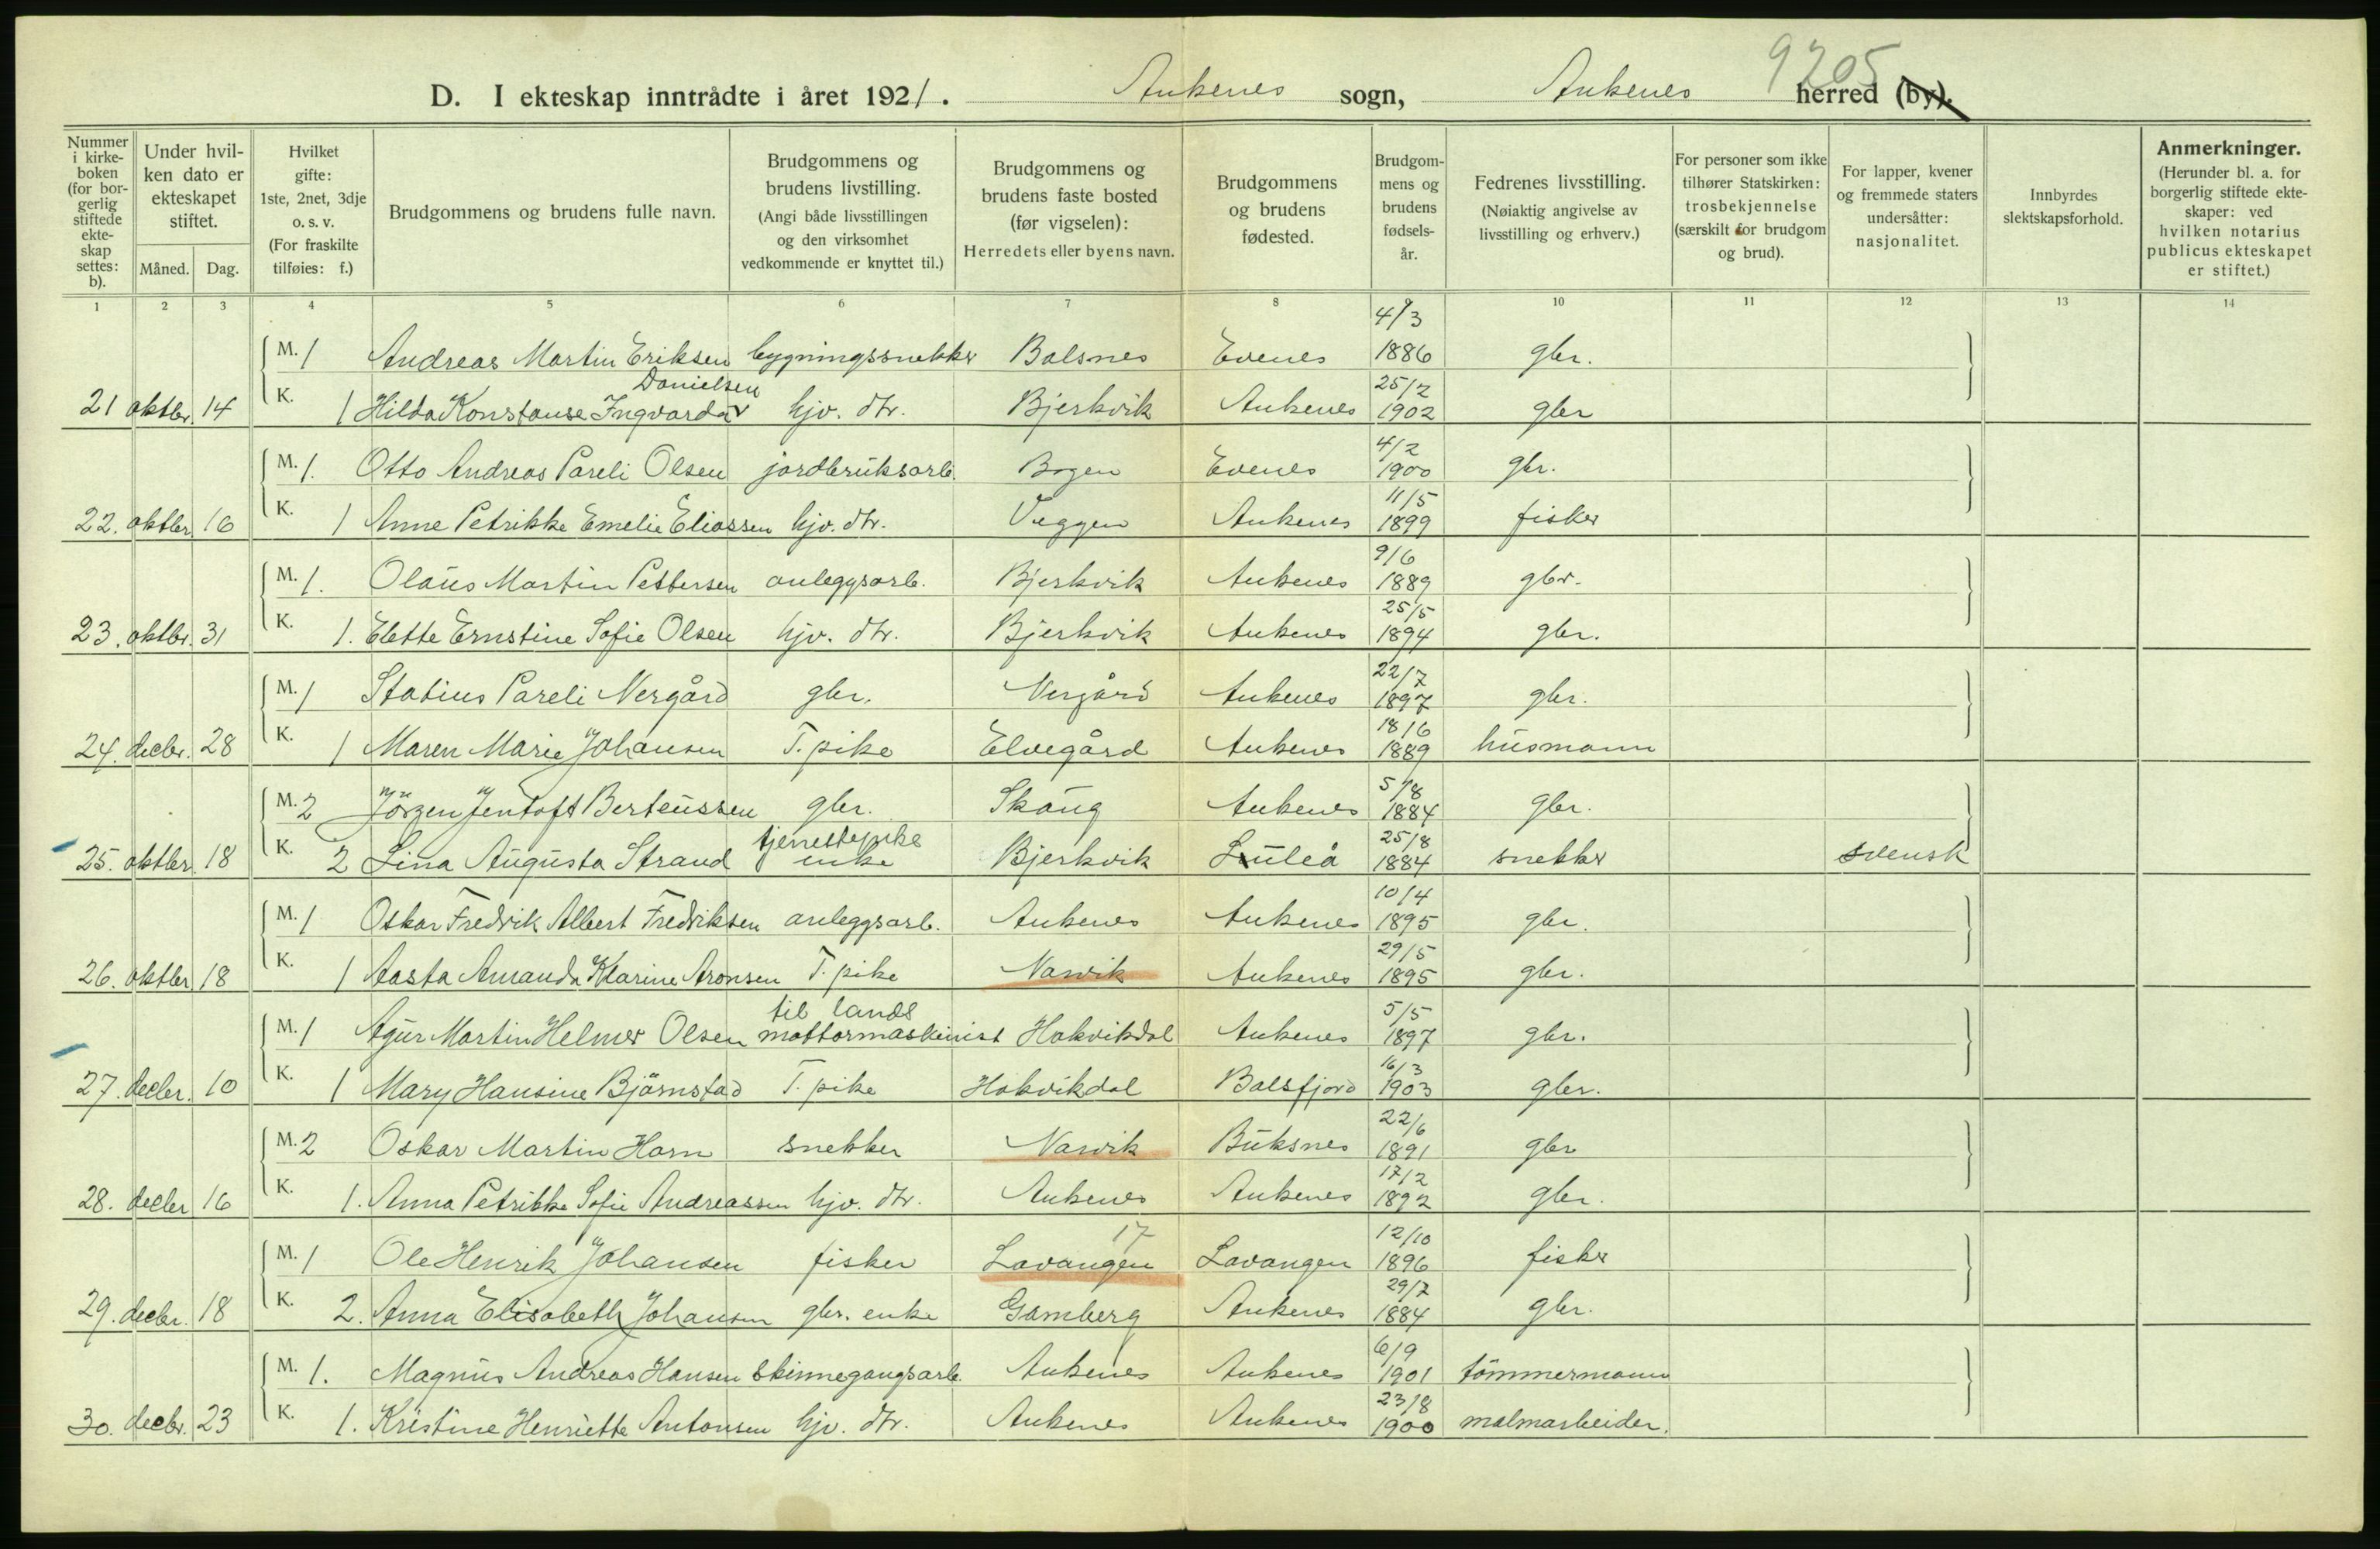 9205
D. I ekteskap inntrådte i året 1921. Ankenes sogn, Ankenes herred (by).
Nummer i kirke-boken (for bor-gerlig stiftede ekte-skap settes: b).
Under hvil-ken dato er ekteskapet stiftet.
Måned. Dag.
Hvilket gifte: 1ste, 2net, 3dje o. s. v. (For fraskilte tilføies: f.)
Brudgommens og brudens fulle navn.
Brudgommens og brudens livstilling. (Angi både livsstillingen og den virksomhet vedkommende er knyttet til.)
Brudgommens og brudens faste bosted (før vigselen): Herredets eller byens navn.
Brudgommens og brudens fødested.
Brudgom-mens og brudens fødsels-år.
Fedrenes livsstilling. (Nøiaktig angivelse av livsstilling og erhverv.)
For personer som ikke tilhører Statskirken: trosbekjennelse (særskilt for brudgom og brud).
For lapper, kvener og fremmede staters undersåtter: nasjonalitet.
Innbyrdes slektskapsforhold.
Anmerkninger. (Herunder bl. a. for borgerlig stiftede ekte-skaper: ved hvilken notarius publicus ekteskapet er stiftet.)
1 2 3 4 5 6 7 8 9 10 11 12 13 14
M. 1 Andreas Martin Eriksen bygningssnekker Balsnes Evenes 4/3 1886 gbr.
Danielsen
21 oktbr. 14 K. 1 Hilda Konstanse Ingvarda hjv. dtr. Bjerkvik Ankenes 25/2 1902 gbr
M. 1. Otto Andreas Pareli Olsen jordbruksarb. Bogen Evenes 4/2 1900 gbr.
22. oktbr. 16 K. 1 Anne Petrikke Emelie Eliassen hjv. dtr. Veggen Ankenes 11/5 1899 fisker
M. 1. Olaus Martin Pettersen anleggsarb. Bjerkvik Ankenes 9/6 1889 gbr.
23. oktbr. 31 K. 1. Elette Ernstine Sofie Olsen hjv. dtr. Bjerkvik Ankenes 25/5 1894 gbr.
M. 1 Statius Pareli Nergård gbr. Nergård Ankenes 22/7 1897 gbr.
24. decbr. 28 K. 1 Maren Marie Johansen T. pike Elvegård Ankenes 18/6 1889 husmann
M. 2 Jörgen Jentoft Berteussen gbr. Skaug Ankenes 5/8 1884 gbr.
tjenestepike
25. oktbr. 18 K. 2 Lina Augusta Strand enke Bjerkvik Luleå 25/8 1884 snekker svensk
M. 1 Oskar Fredrik Albert Fredriksen anleggsarb. Ankenes Ankenes 10/4 1895 gbr.
26. oktbr. 18 K. 1 Aasta Amanda Klarine Aronsen T. pike Narvik Ankenes 29/5 1895 gbr.
til lands
M. 1 Agur Martin Helmer Olsen mottormaskinist Hakvikdal Ankenes 5/5 1897 gbr.
27. decbr. 10 K. 1 Mary Hansine Björnstad T. pike Hakvikdal Balsfjord 16/3 1903 gbr.
M. 2 Oskar Martin Horn snekker Narvik Buksnes 22/6 1891 gbr
28. decbr 16 K. 1. Anna Petrikke Sofie Andreassen hjv. dtr. Ankenes Ankenes 17/2 1892 gbr.
17
M. 1 Ole Henrik Johansen fisker Lavangen Lavangen 12/10 1896 fisker
29. decbr. 18 K. 2. Anna Elisabeth Johansen gbr. enke Gamberg Ankenes 29/7 1884 gbr.
M. 1. Magnus Andreas Hansen skinnegangsarb. Ankenes Ankenes 6/9 1901 tömmermann
30. decbr. 23 K. 1. Kristine Henriette Antonsen hjv. dtr. Ankenes Ankenes 23/8 1900 malmarbeider.